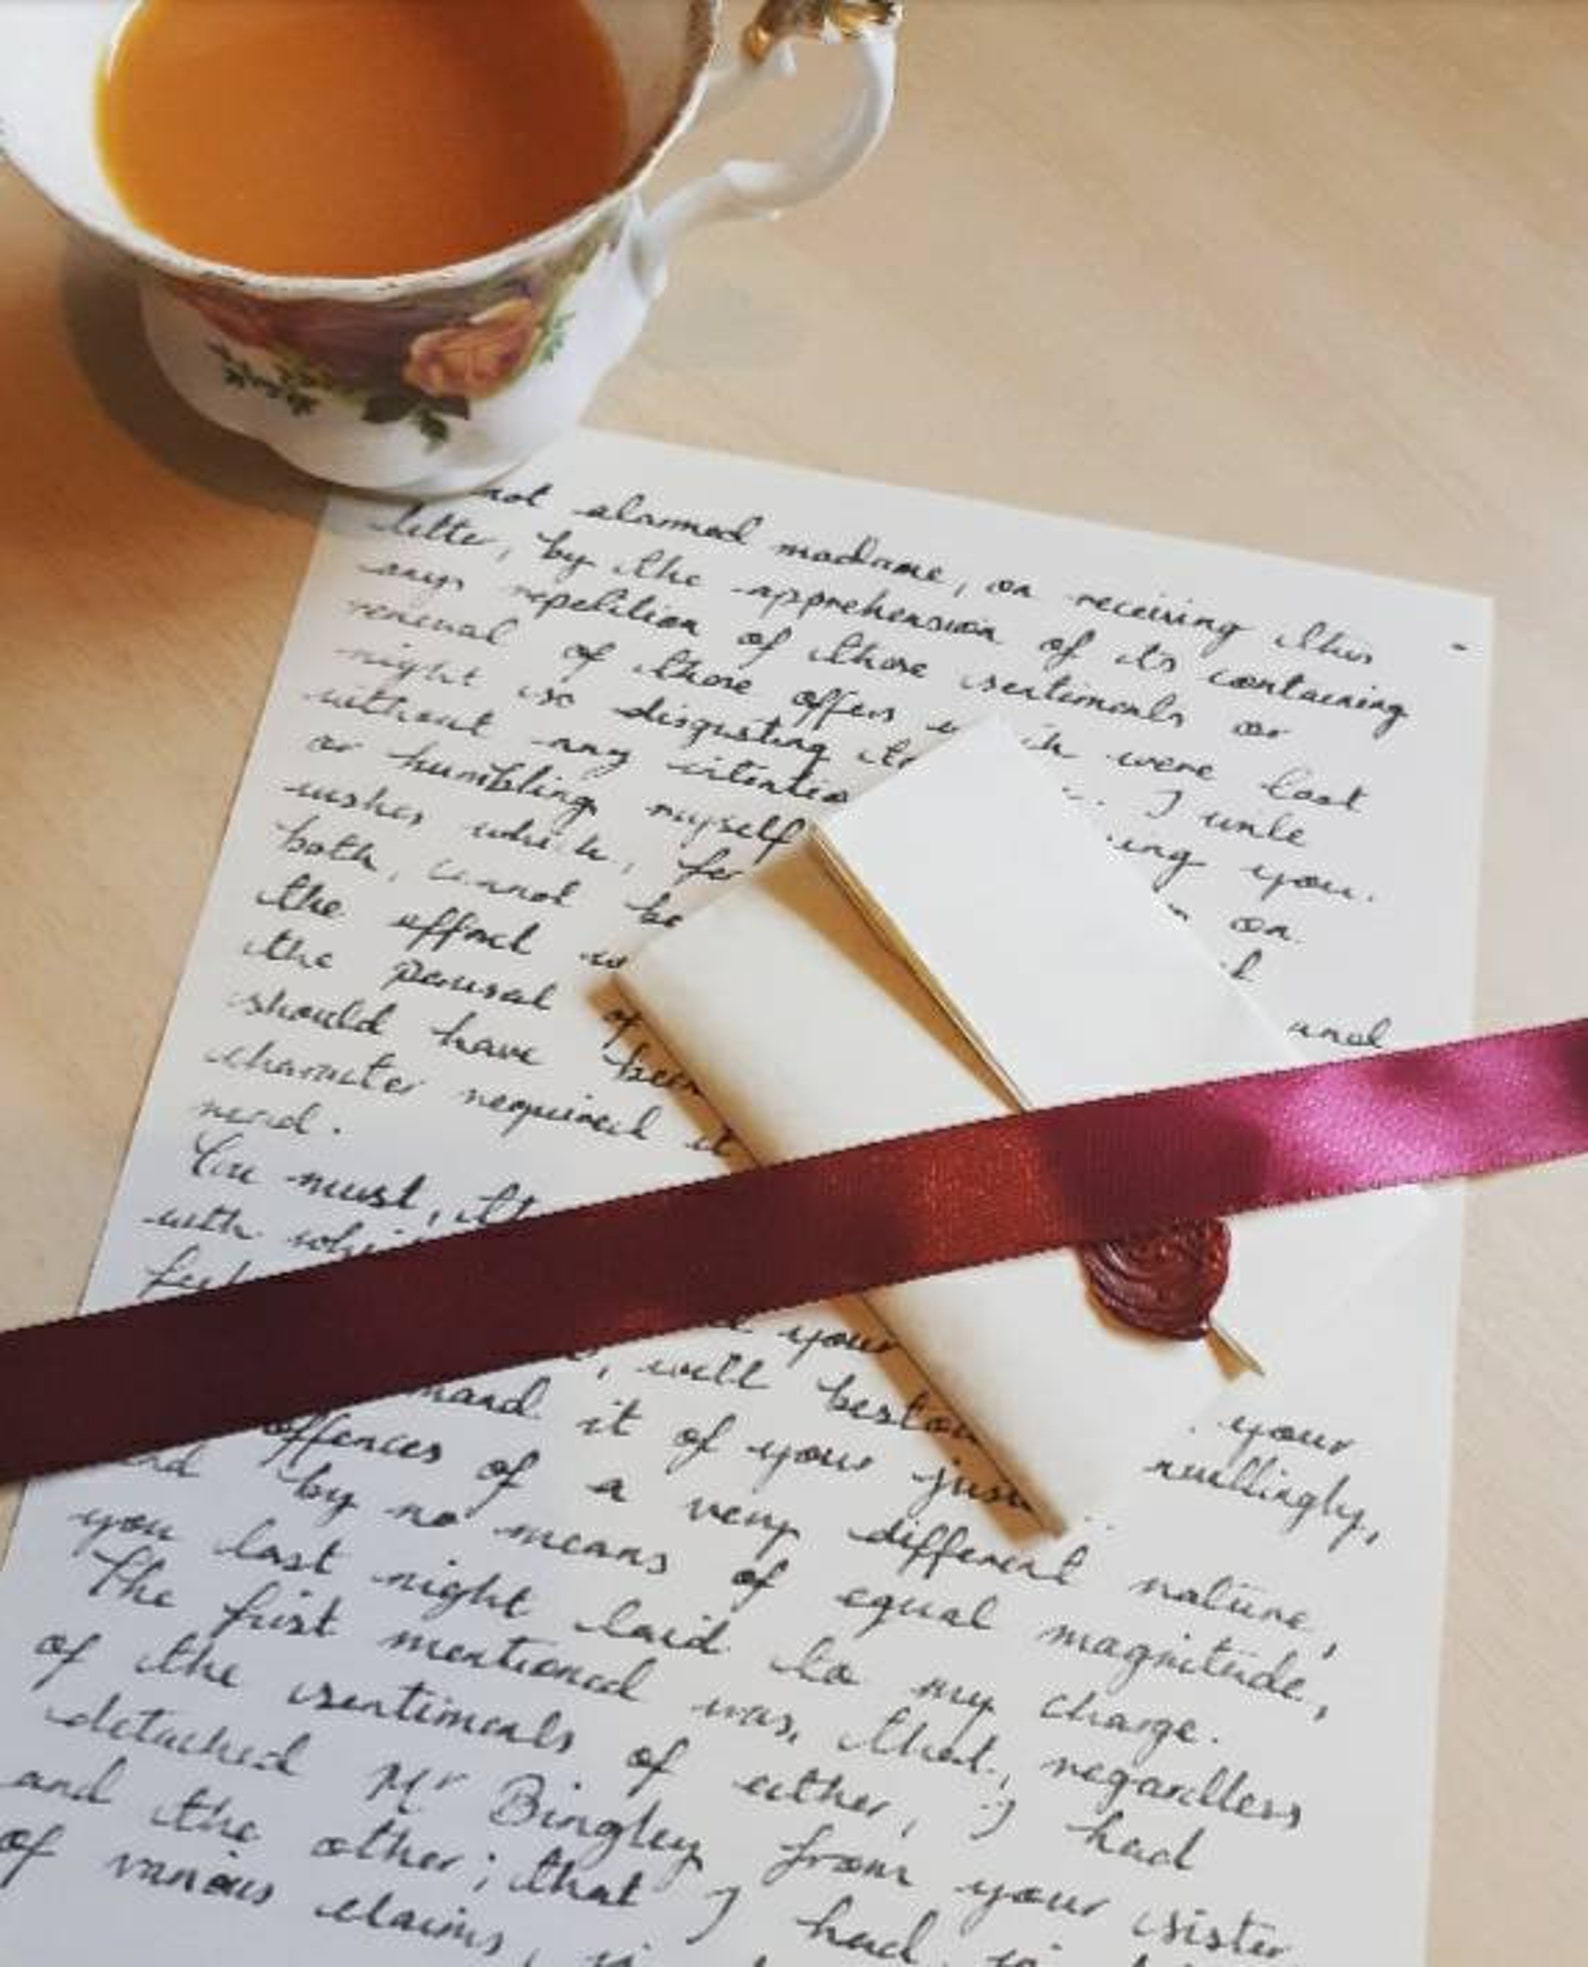 not alarmed madame, on receiving this
letter, by the apprehension of its containing
any repetition of those sentiments or
renewal of those offers which were last
night so disgusting to I write
without any intentio ing you.
or humbling myself on
wishes which, for
both, cannot be
the effort and
the perusal of
should have been
character required it
read.
You must, 
with whi
feel
d your your
, will bestow willingly,
mand it of your jus
offences of a very different nature,
nd by no means of equal magnitude,
you last night laid to my charge.
The first mentioned was, that, regardless
of the sentiments of either, I had
detached Mr Bingley from your sister
and the other; that I had, in
of various claims, in